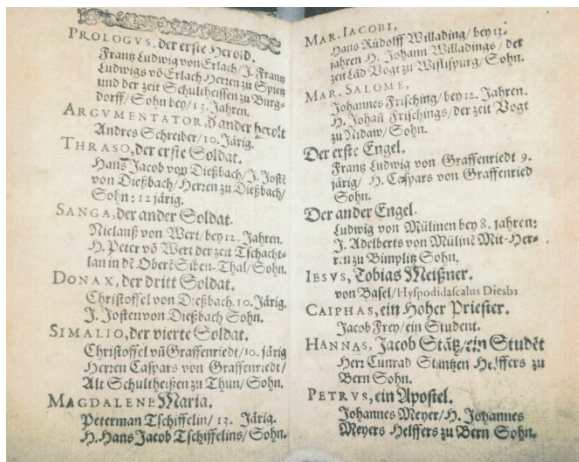 PROLOGVS, der erste Herold.
Frantz Ludwig von Erlach / J. Frantz
Ludwigs võ Erlach Herren zu Spietz
und der zeit Schultheissen zu Burg-
dorff / Sohn bey / 13. Jahren.
ARGVMENTATOR, d ander herolt
Andres Schreiber / 10. Järig.
THRASO, der erste Soldat.
Hans Jacob von Dießbach / J. Jostẽ
von Dießbach / Herren zu Dießbach /
Sohn: 12 järig.
SANGA, der ander Soldat.
Niclauß von Wert / bey 12. Jahren.
H. Peter võ Wert der zeit Tschacht-
lan in dẽ Oberẽ Siben-Thal / Sohn.
DONAX, der dritt Soldat.
Christoffel von Dießbach. 10. Järig.
J. Josten von Dießbach Sohn.
SIMALIO, der vierte Soldat.
Christoffel vũ Graffenriedt / 10. järig
Herren Caspars von Graffenriedt /
Alt Schultheißen zu Thun / Sohn.
MAGDALENE Maria.
Peterman Tschiffelin / 12. Järig.
H. Hans Jacob Tschiffelins / Sohn.
MAR. IACOBI,
Hans Rüdolff Willading / bey 13.
jahren H. Johann Willadings / der
zeit Läd Vogt zu Wiflispurg / Sohn.
MAR. SALOME,
Johannes Frisching / bey 12. Jahren.
H. Johañ Frischings / der zeit Vogt
zu Nidaw / Sohn.
Der erste Engel.
Frantz Ludwig von Graffenriedt 9.
järig / H. Caspars von Graffenried
Sohn.
Der ander Engel.
Ludwig von Mülinen bey 8. jahren:
J. Adelberts von Mülinẽ Mit-Her-
ren zu Bimplitz Sohn.
IESVS, Tobias Meißner.
von Basel / Hypodidascalus
CAIPHAS, ein Hoher Priester.
Jacob Frey / ein Student.
HANNAS, Jacob Stätz / ein Studẽt
Herr Cunrad Stantzen Helffers zu
Bern Sohn.
PETRVS, ein Apostel.
Johannes Meyer / H. Johannes
Meyers Helffers zu Bern Sohn.